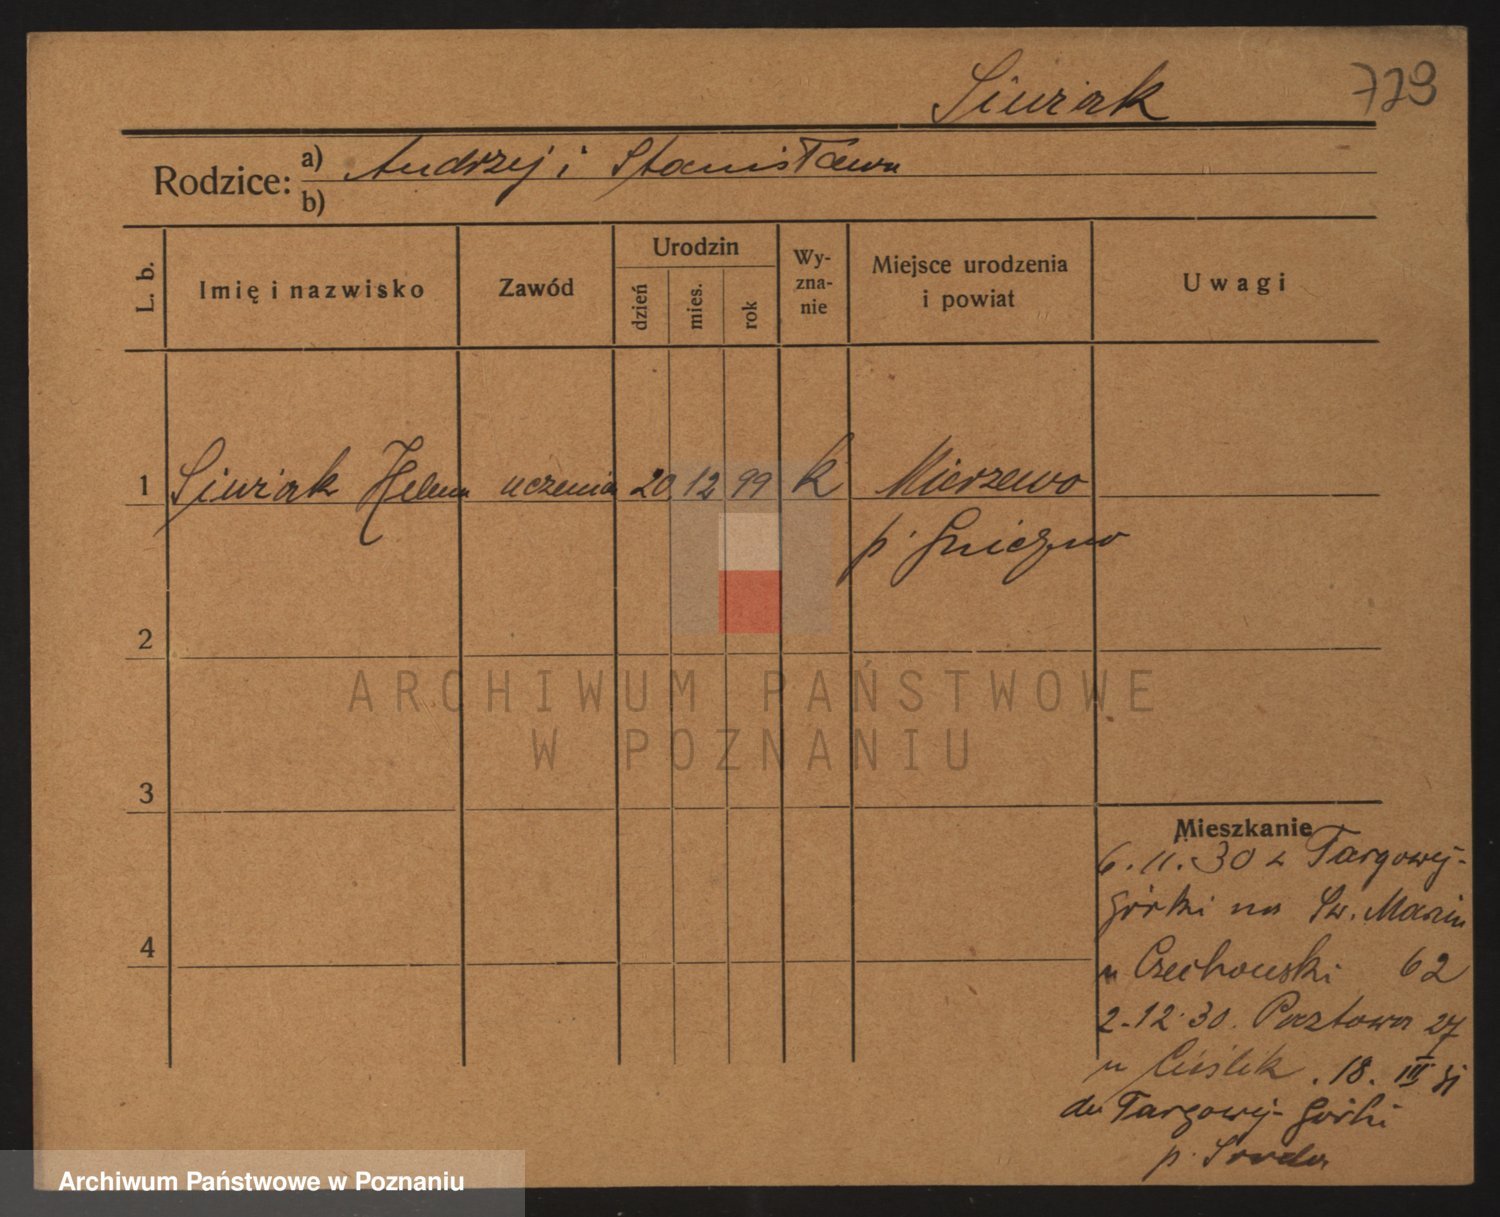 Siwiak 729
Rodzice: a) Andrzej i Stanisława
b)
L. b. Imię i nazwisko Zawód Urodzin dzień mies. rok Wy-zna-nie Miejsce urodzenia i powiat Uwagi
1 Siwiak Helena uczenia 20 12 99 k Mierzewo
p. Gniezno
2
ARCHIWUM PAŃSTWOWE
W POZNANIU
3
Mieszkanie
6.11.30 z Targowej-
Górki na Św. Marcin
u Czechowski 62
2.12.30. Pocztowa 27
u Cieślik. 18. III 31
4
do Targowej-Górki
p. Środa
Archiwum Państwowe w Poznaniu